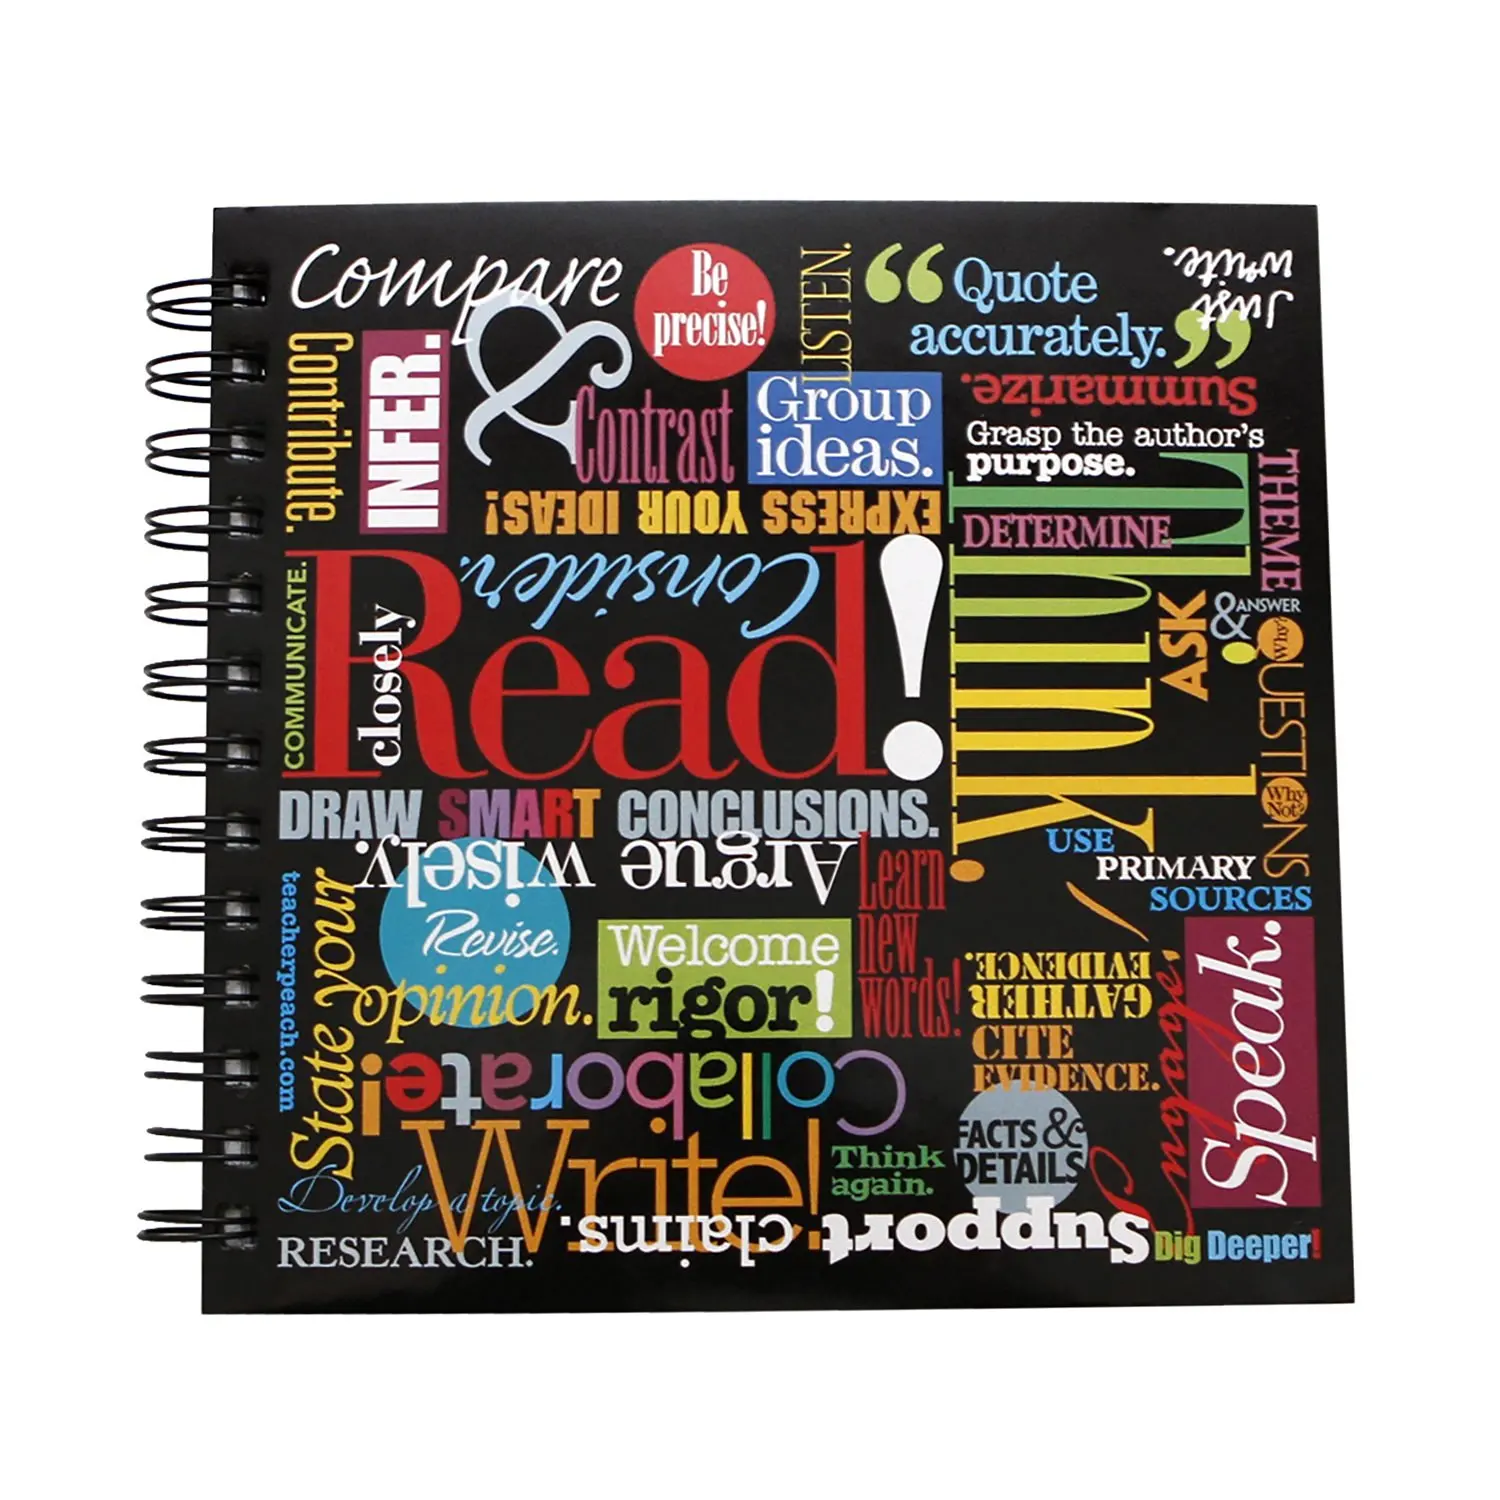 Compare
&
Contrast
Be
precise!
LISTEN.
“Quote
accurately.”
Just
write.
Contribute.
INFER.
Group
ideas.
Summarize.
Grasp the author's
purpose.
EXPRESS YOUR IDEAS!
DETERMINE
THEME
Think.
Consider.
COMMUNICATE.
Read!
closely
ASK
& ANSWER
Why?
QUESTIONS
Why
Not?
DRAW SMART CONCLUSIONS.
USE
PRIMARY
SOURCES
Argue wisely.
Learn
new
words!
teacherpeach.com
State your
opinion.
Revise.
Welcome
rigor!
GATHER
EVIDENCE.
CITE
EVIDENCE.
Speak.
Collaborate!
Write!
Think
again.
FACTS &
DETAILS
Develop a topic.
RESEARCH.
Support claims.
Dig Deeper!